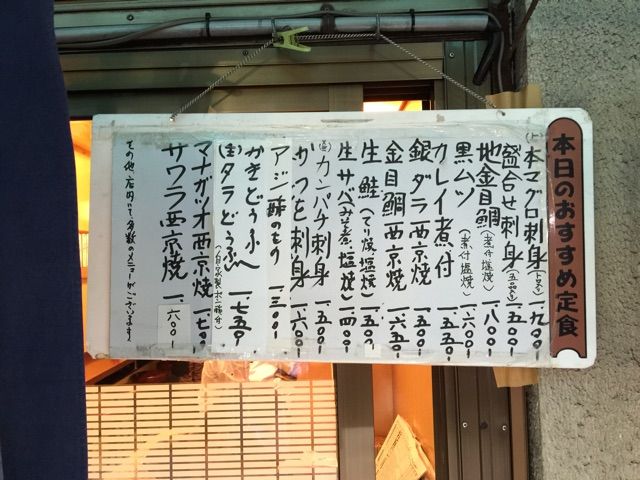 本日のおすすめ定食
本マグロ刺身 一、九〇〇-
盛合せ刺身(五品入) 一、五〇〇-
地金目鯛(煮付塩焼) 一、八〇〇-
黒ムツ(煮付塩焼) 一、六〇〇-
カレイ煮付 一、五五〇-
銀ダラ西京焼 一、五〇〇-
金目鯛西京焼 一、六五〇-
生鮭(てり焼塩焼) 一、五五〇-
生サバ(みそ煮、塩焼) 一、四〇〇-
カンパチ刺身 一、五〇〇-
かつを刺身 一、六〇〇-
アジ酢のもり 一、三〇〇-
かきどうふ
(生)タラどうふ 一、七五〇-
(自家製ポン酢付)
マナガツオ西京焼 一、七〇〇-
サワラ西京焼 一、六〇〇-
その他、店内にて多数のメニューがございます